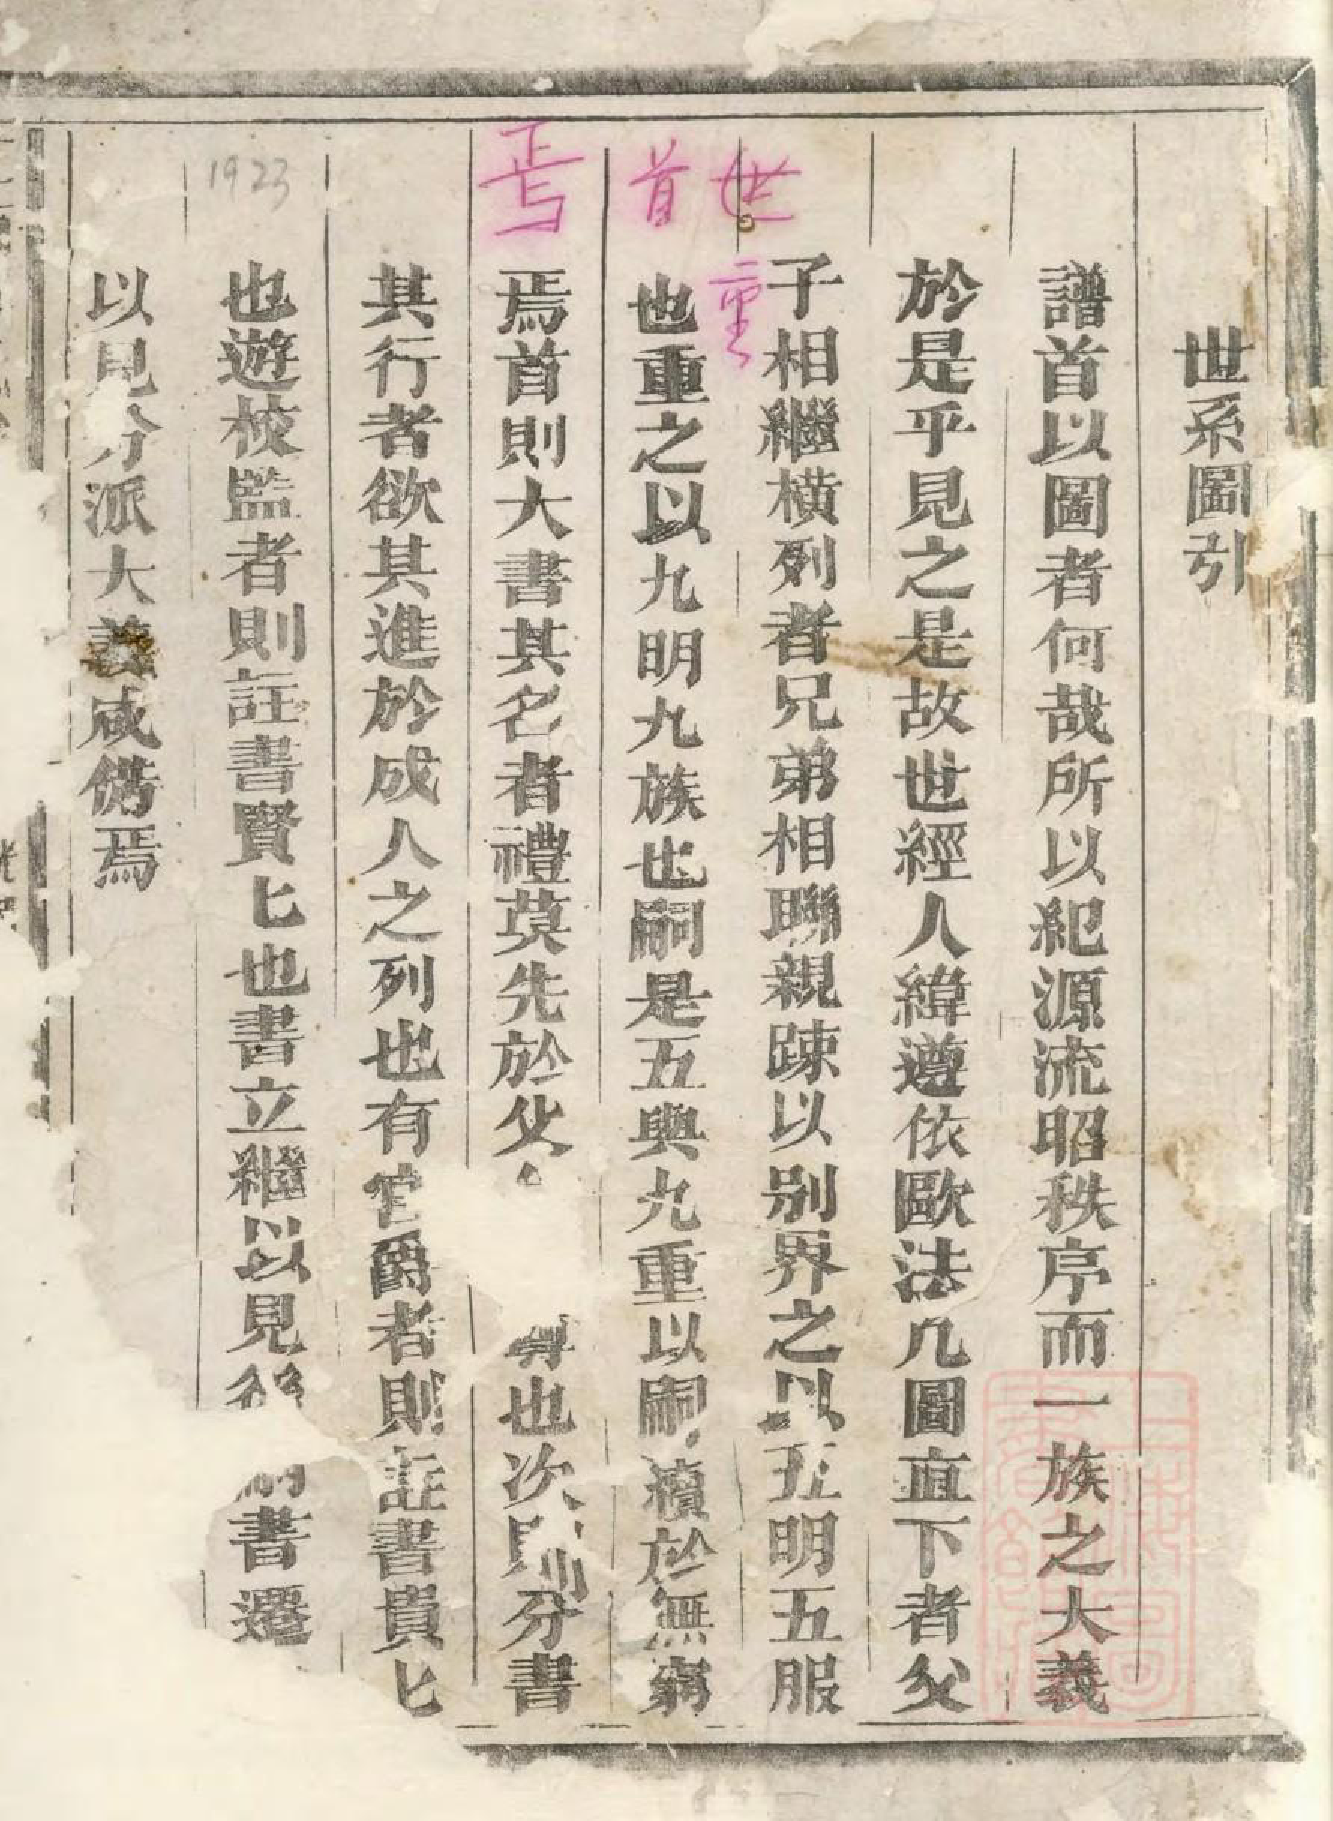 世系圖引
譜首以圖者何哉所以紀源流昭秩序而一族之大義
於是乎見之是故世經人緯遵依歐法凡圖直下者父
子相繼橫列者兄弟相聯親踈以別界之以五明五服
也重之以九明九族也嗣是五與九重以嗣續於無窮
焉首則大書其名者禮莫先於父也次則分書
其行者欲其進於成人之列也有官爵者則註書貴匕
也遊校監者則註書賢匕也書立繼以見後嗣書遷
以見分派大義咸備焉
世
重
首
焉
1923